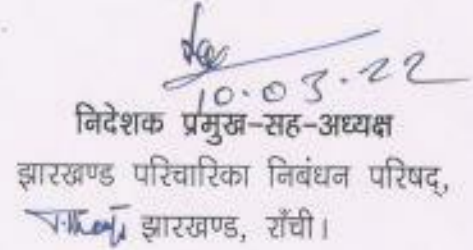 10.03.22
निदेशक प्रमुख-सह-अध्यक्ष
झारखण्ड परिचारिका निबंधन परिषद्,
झारखण्ड, राँची।